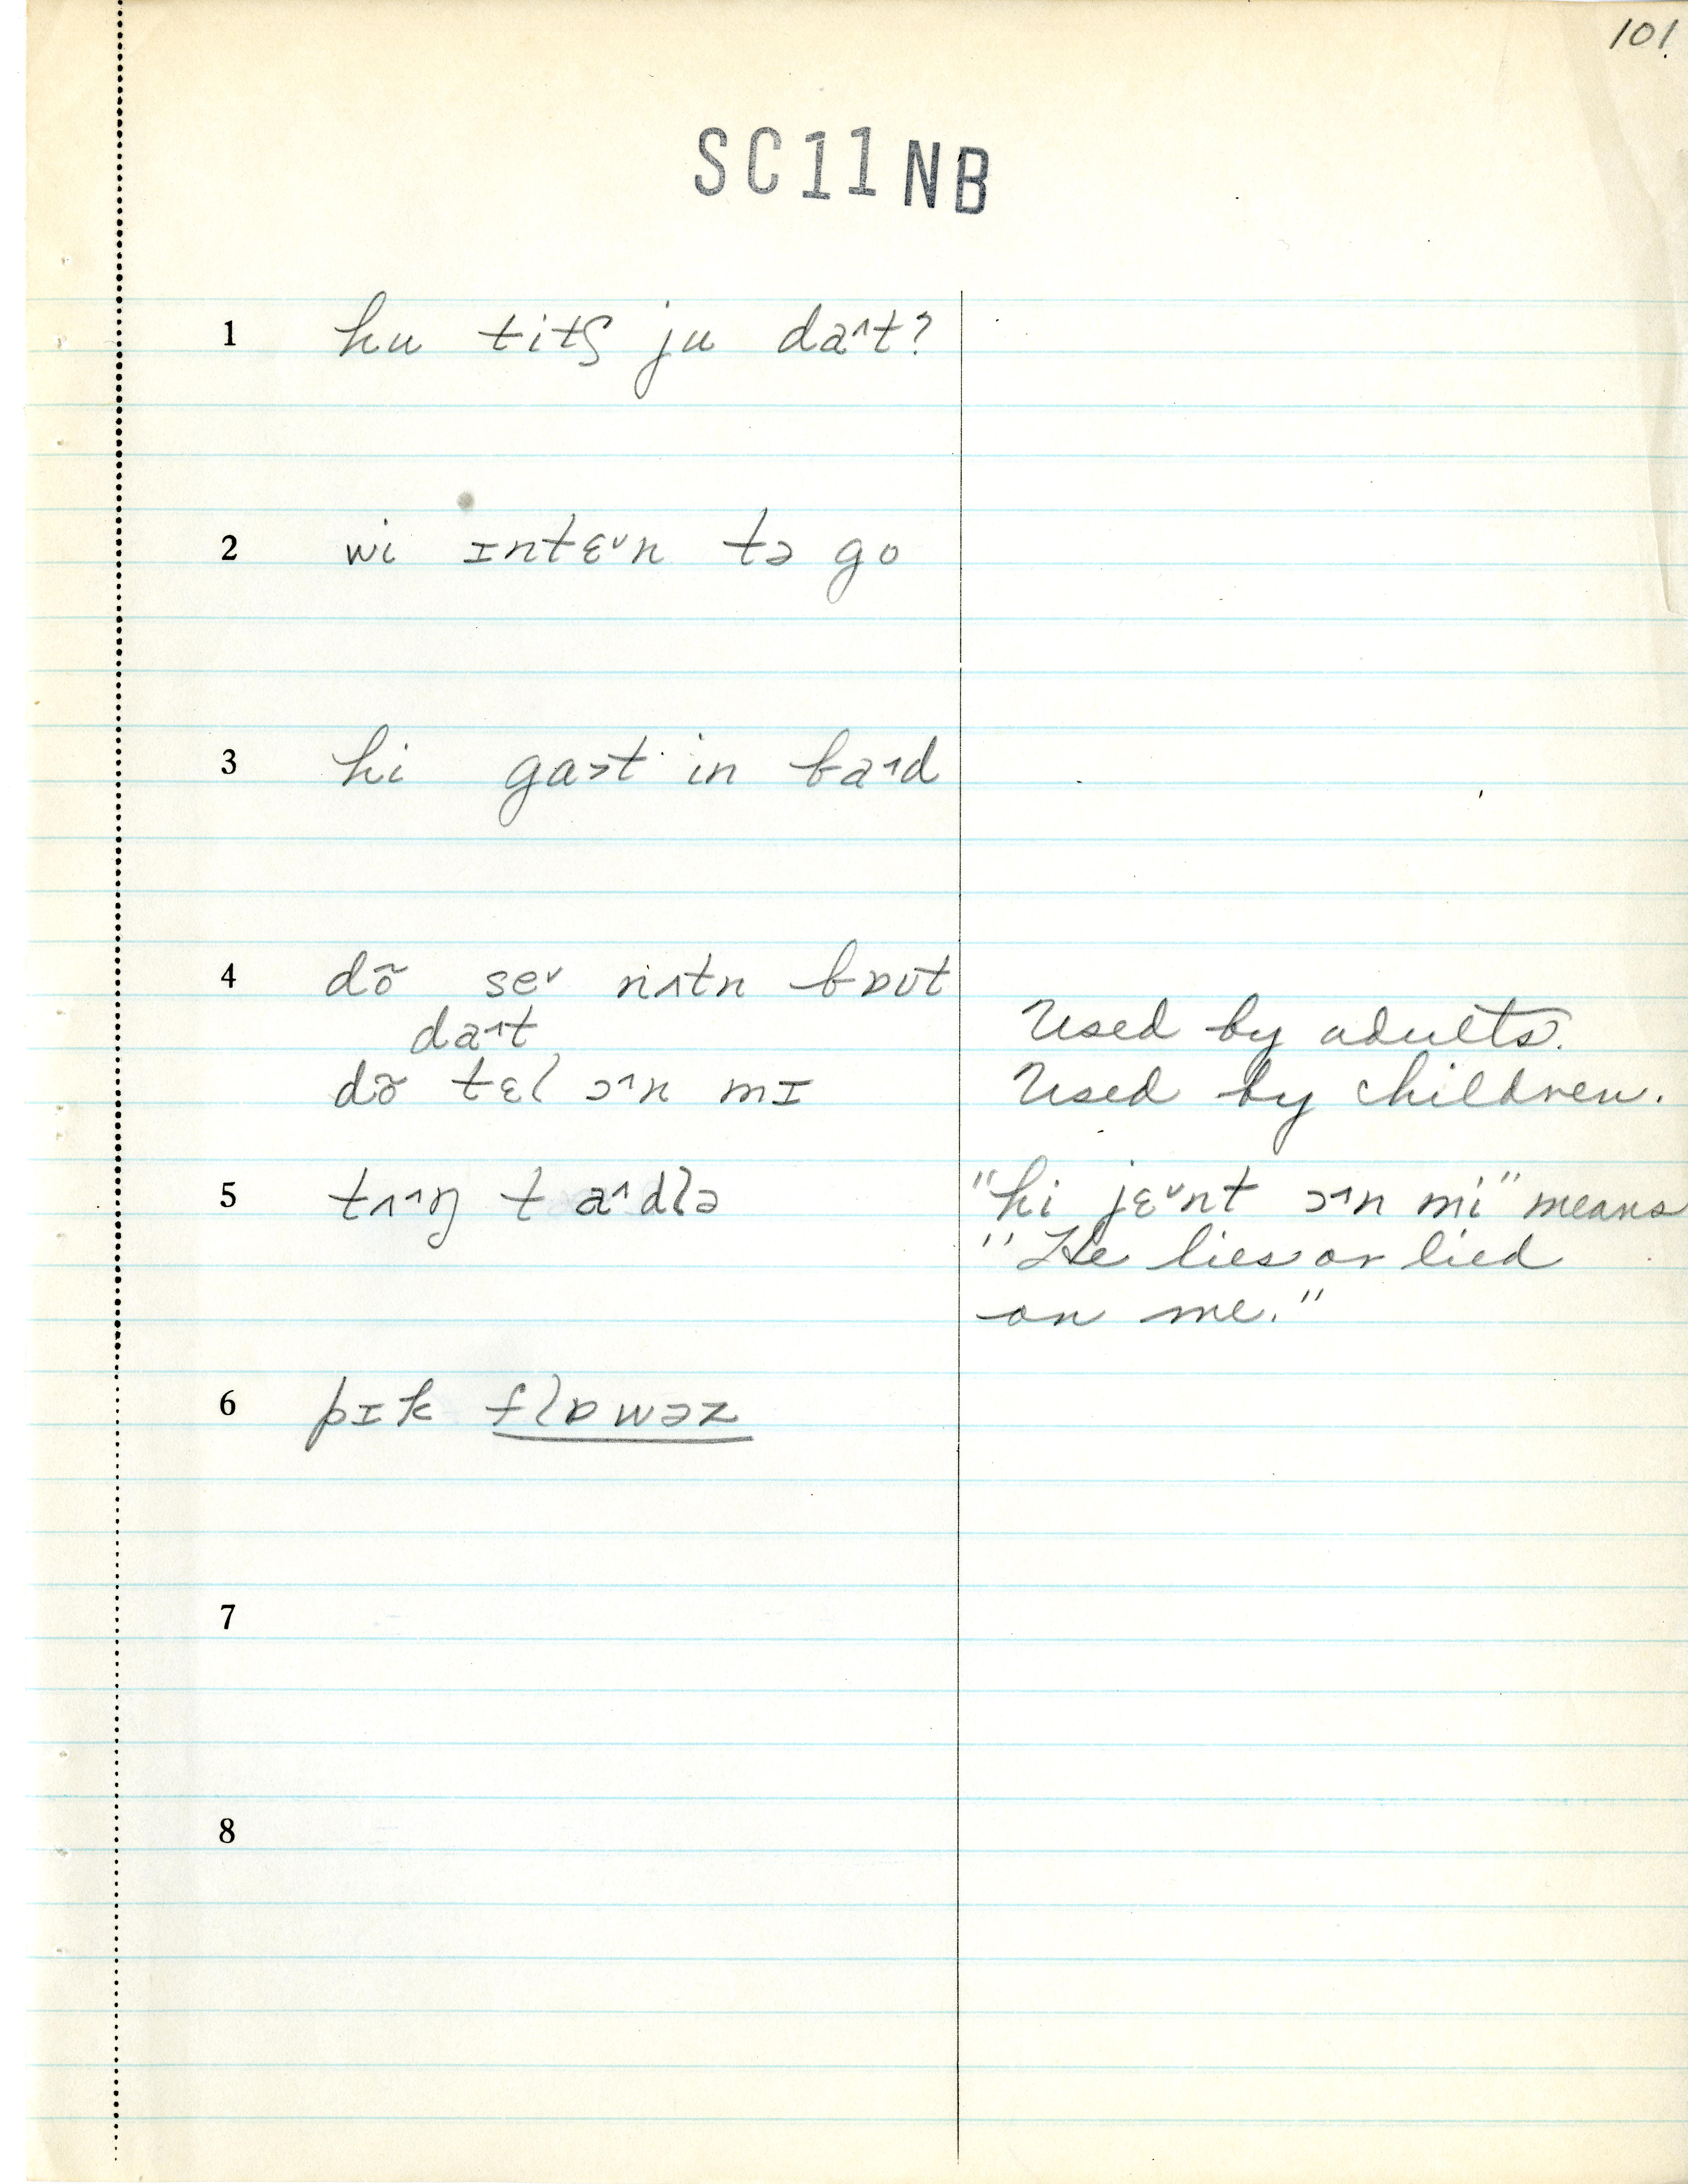 101.
SC11NB
1 hu titʃ ju da˄t?
2 wi ɪntɛ˅n tə go
3 hi ga˃t in ba˄d
4 dõ se˅ nʌtn bɒʊt
da˄t Used by adults.
dõ tɛl ɔ˄n mɪ Used by children.
5 tʌ˄ŋ t a˄dlə "hi jɛ˅nt ɔ˄n mi" means
"He lies or lied
on me."
6 pɪk flɒwəz
7
8